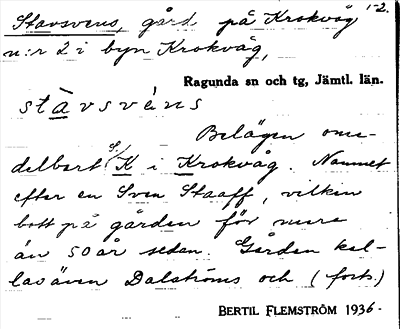 Stavsvens, gård på Krokvåg 1-2.
n:r 2 i byn Krokvåg,
Ragunda sn och tg, Jämtl. län.
stàvsvéns
Belägen ome-
delbart S. K i Krokvåg. Namnet
efter en Sven Staaff, vilken
bott på gården för mera
än 50 år sedan. Gården kal-
las även Dalströms och (forts.)
BERTIL FLEMSTRÖM 1936.